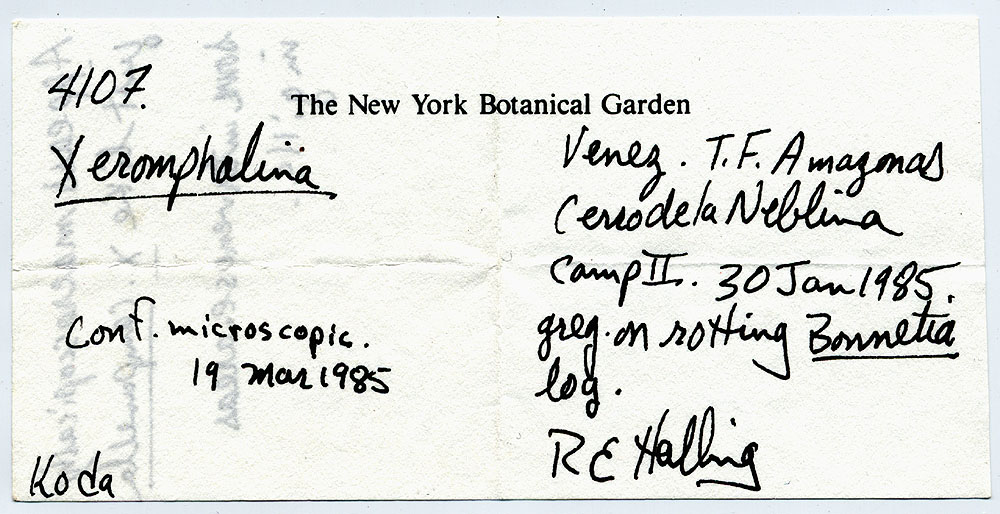 The New York Botanical Garden
4107.
Xeromphalina
Conf. microscopic.
19 Mar 1985
Koda
Venez. T.F. Amazonas
Cerro de la Neblina
Camp II. 30 Jan 1985.
greg. on rotting Bonnetia
log.
R E Halling